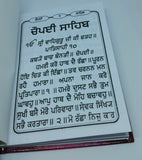 ਚੌਪਈ ਸਾਹਿਬ
ੴ ਸ੍ਰੀ ਵਾਹਿਗੁਰੂ ਜੀ ਕੀ ਫਤਹ॥
ਪਾਤਿਸਾਹੀ ੧੦॥
ਕਬਯੋ ਬਾਚ ਬੇਨਤੀ॥ ਚੌਪਈ॥
ਹਮਰੀ ਕਰੋ ਹਾਥ ਦੈ ਰਛਾ॥ ਪੂਰਨ
ਹੋਇ ਚਿਤ ਕੀ ਇਛਾ॥ ਤਵ ਚਰਨਨ ਮਨ
ਰਹੈ ਹਮਾਰਾ॥ ਅਪਨਾ ਜਾਨ ਕਰੋ
ਪ੍ਰਤਿਪਾਰਾ॥੧॥ ਹਮਰੇ ਦੁਸਟ ਸਭੈ ਤੁਮ
ਘਾਵਹੁ॥ ਆਪੁ ਹਾਥ ਦੈ ਮੋਹਿ ਬਚਾਵਹੁ॥
ਸੁਖੀ ਬਸੈ ਮੋਰੋ ਪਰਿਵਾਰਾ॥ ਸੇਵਕ ਸਿਖ੍ਯ
ਸਭੈ ਕਰਤਾਰਾ॥੨॥ ਮੋ ਰਛਾ ਨਿਜੁ ਕਰ